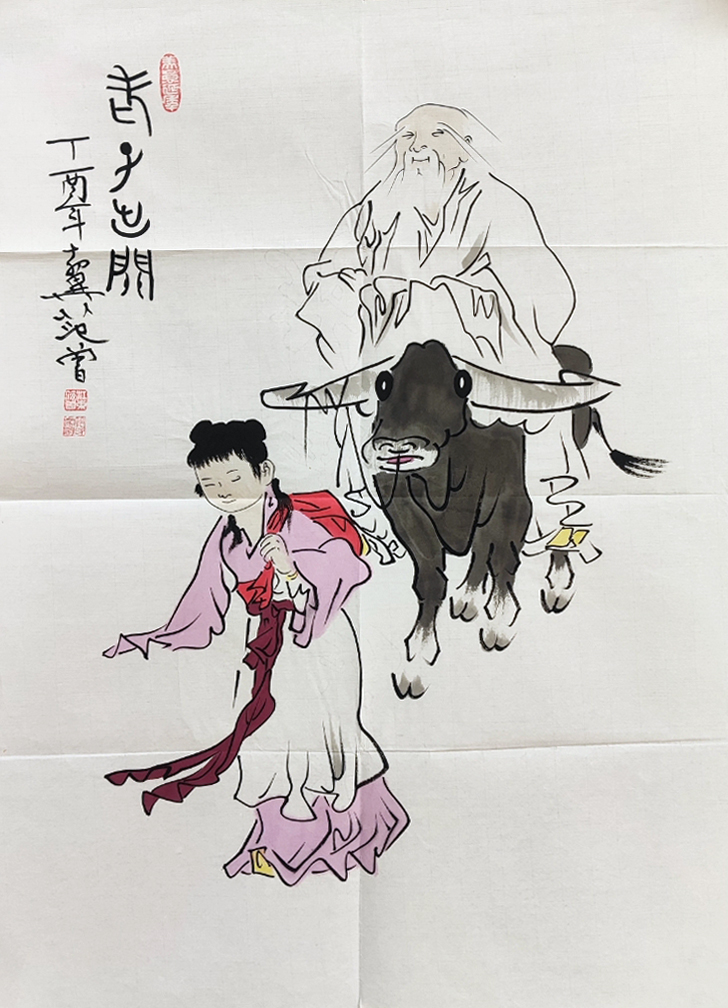 老子出關
丁酉年十翼范曾